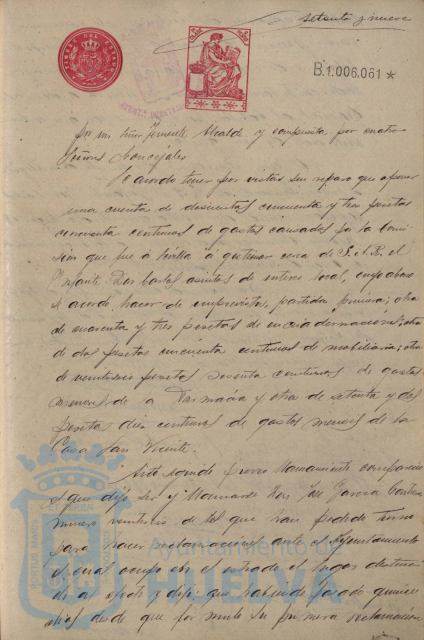 setenta y nueve
B.1.006.061 *
por un Señor Teniente Alcalde y compuesta por cuatro
Señores Concejales.
Se acordó tener por vistas sin reparo que oponer
una cuenta de doscientas cincuenta y tres pesetas
cincuenta centimos de gastos causados por la comi
sion que fué á Sevilla á gestionar cerca de S.A.R. el
Infante Don Carlos asuntos de interes local, cuyo abono
se acordó hacer de imprevistos, partida primera; otra
de cuarenta y tres pesetas de encuadernaciones; otra
de dos pesetas cincuenta centimos de mobiliario; otra
de veintiseis pesetas sesenta centimos de gastos
menores de la Farmacia y otra de setenta y dos
pesetas diez centimos de gastos menores de la
Casa San Vicente.
previo llamamiento compareció
el que dijo ser y llamarse Don José Garcia
numero veintiocho de los que han pedido turno
para hacer reclamaciones ante el Ayuntamiento
el cual ocupó en el estrado el lugar destina
do al efecto y dijo: que habiendo pasado quince
dias desde que formuló su primera reclamacion
Ayuntamiento de
HUELVA